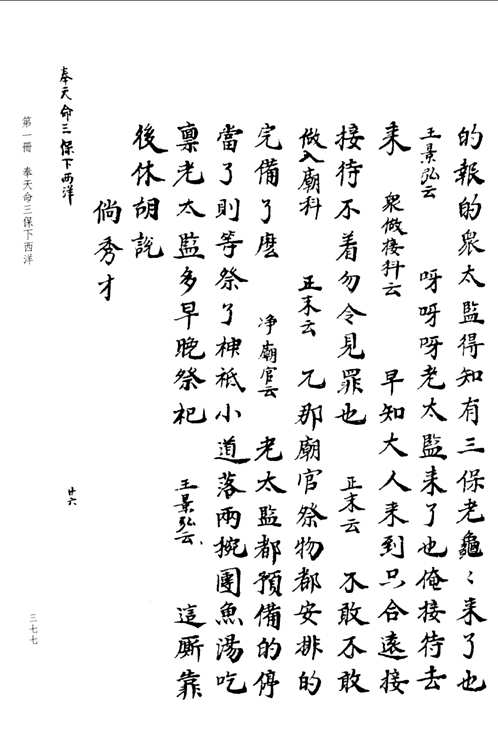 的報的衆太監得知有三保老龜〻来了也
王景弘云　呀呀呀老太監来了也俺接待去
来　衆做接科云　早知大人来到只合遠接
接待不着勿令見罪也　正末云　不敢不敢
做入廟科　正末云　兀那廟官祭物都安排的
完備了麽　净廟官云　老太監都預備的停
當了則等祭了神祇小道落兩碗團魚湯吃
禀老太監多早晚祭祀　王景弘云　這厮靠
後休胡說
倘秀才
奉天命三保下西洋
廿六
第一冊　奉天命三保下西洋
三七七